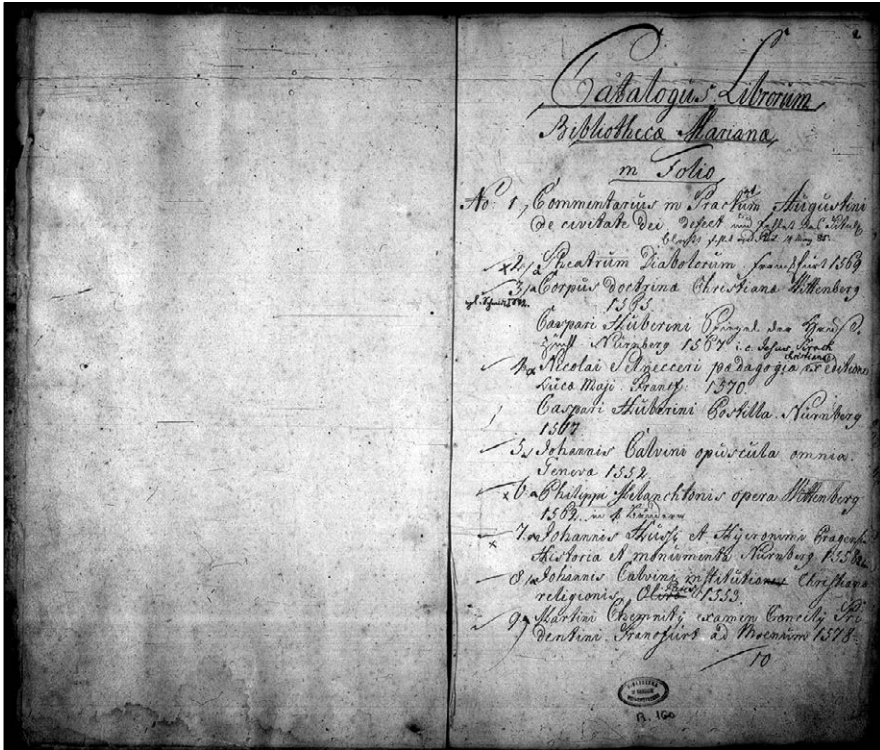 Catalogus Librorum
Bibliothecæ Marianæ
in Folio
No: 1, Commentarius in Tractum Augustini
de civitate dei, defect und fehlet das Titul
2, Theatrum Diabolorum, Franckfurt 1569
3, Corpus doctrinæ Christianæ Wittenberg
1565
Caspari Huberini Spiegel der Hauß
Zucht Nürnberg 1567 i. e. Jesus Sirach
4, Nicolai Selnecceri pædagogia christiana editione
Lucæ Maji. Francf: 1570
Caspari Huberini Postilla. Nürnberg
1567
5, Johannis Calvini opuscula omnia.
Geneva 1552
6, Philippi Melanchtonis opera Wittenberg
1562. in 4 Bänden
7, Johannis Hussi et Hyeronimi Pragens
Historia et monumenta Nürnberg 1558
8, Johannis Calvini institutiones Christianæ
religionis, 1553.
9, Martini Chemnitij examen Concilij Tri
dentini. Francfurt ad Moenum 1578
10
R. 160